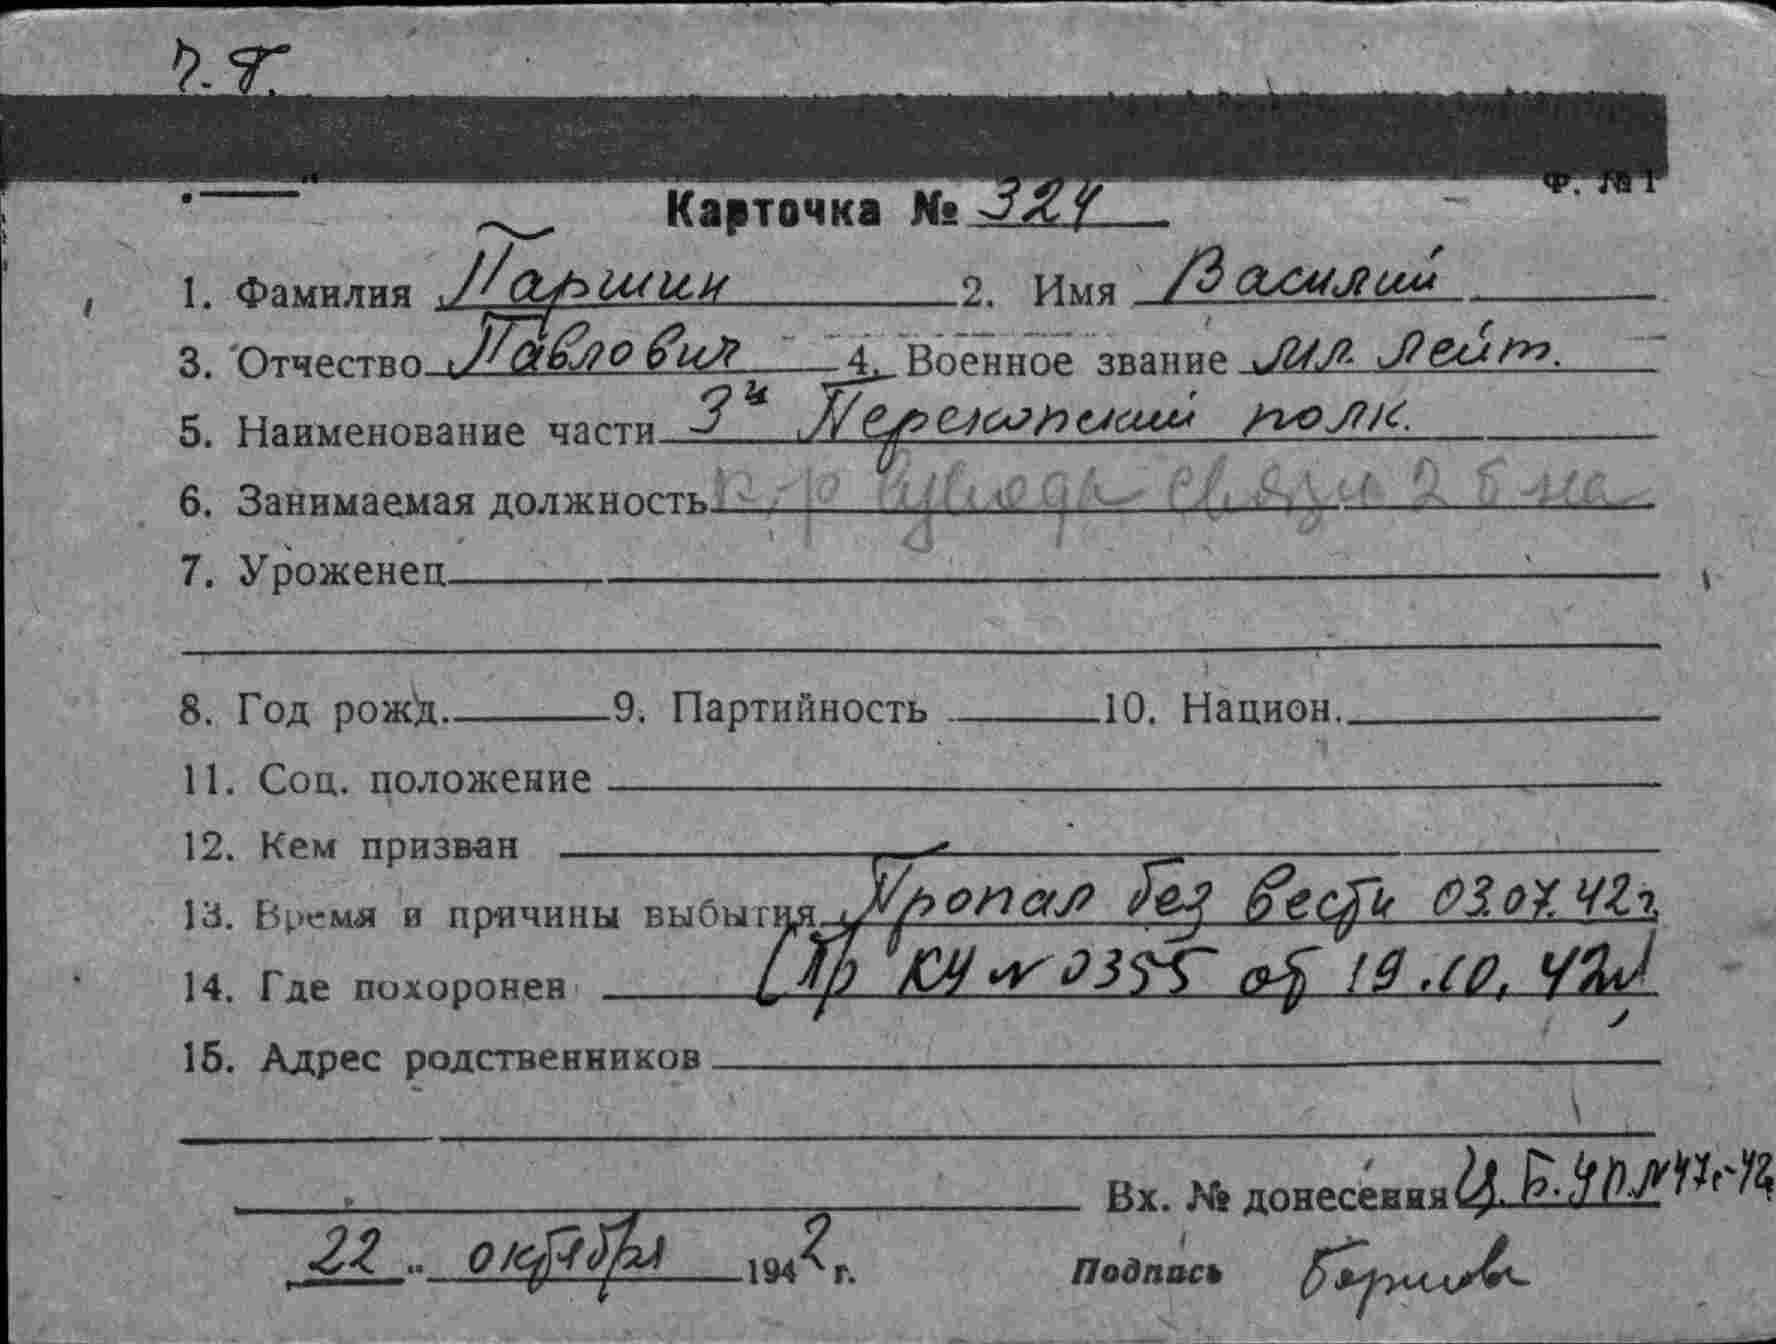 Ф. № 1
Карточка № 324
1. Фамилия Паршин 2. Имя Василий
3. Отчество Павлович 4. Военное звание мл. лейт.
5. Наименование части 3й Перекопский полк.
6. Занимаемая должность связи 2 б-на
7. Уроженец
8. Год рожд. 9. Партийность 10. Национ.
11. Соц. положение
12. Кем призван
13. Время и причины выбытия Пропал без вести 03.07.42г.
14. Где похоронен Пр КЧ № 0355 от 19.10.42
15. Адрес родственников
Вх. № донесения
22 октября 1942 г. Подпись